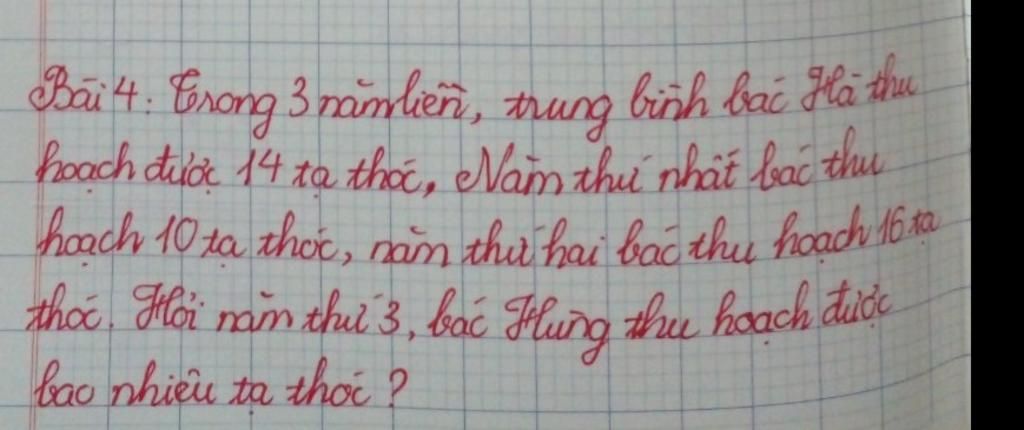 Bài 4. Trong 3 năm liền, trung bình bác Hà thu
hoạch được 14 tạ thóc, Năm thứ nhất bác thu
hoạch 10 tạ thóc, năm thứ hai bác thu hoạch 16 tạ
thóc. Hỏi năm thứ 3, bác Hùng thu hoạch được
bao nhiêu tạ thóc?